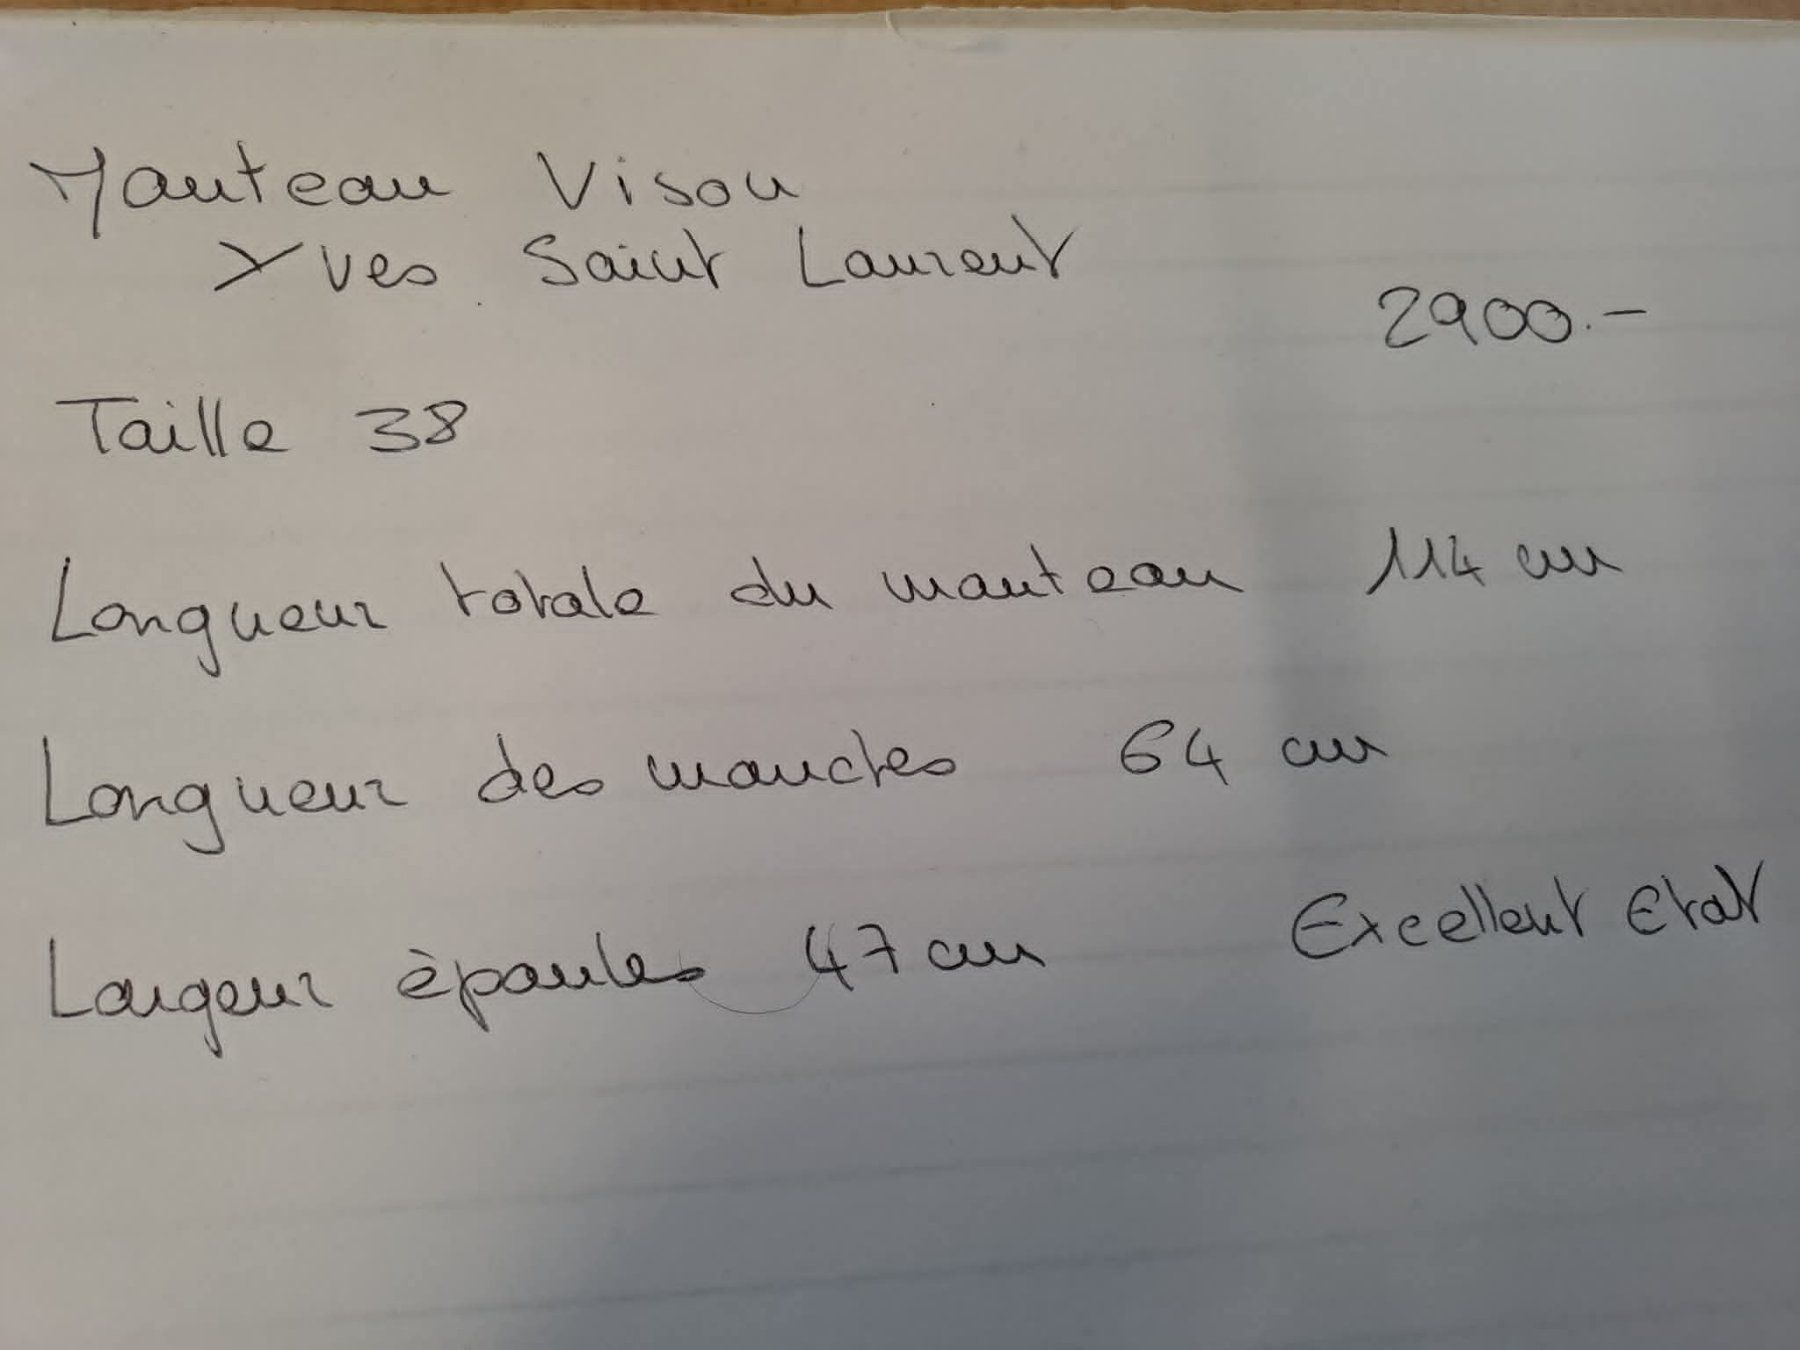 Manteau Vison
Yves Saint Laurent
2900.-
Taille 38
Longueur totale du manteau 114 cm
Longueur des manches 64 cm
Largeur épaules 47 cm
Excellent Etat